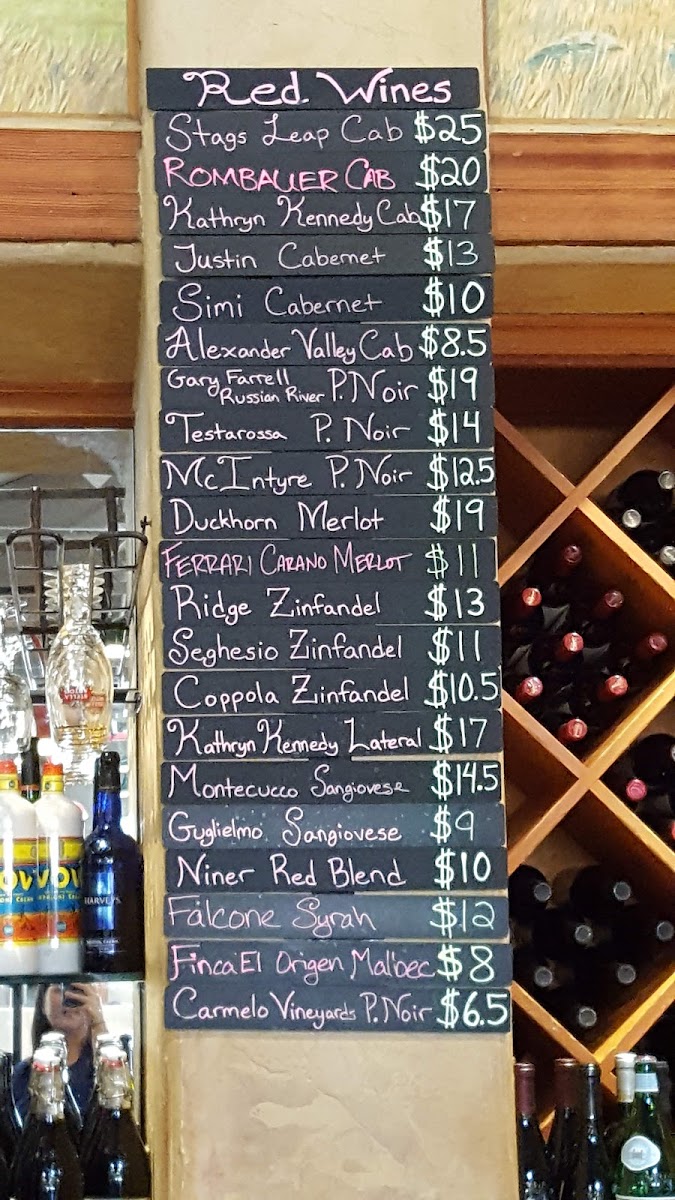 Red Wines
Stags Leap Cab $25
ROMBAUER CAB $20
Kathryn Kennedy Cab $17
Justin Cabernet $13
Simi Cabernet $10
Alexander Valley Cab $8.5
Gary Farrell Russian River P. Noir $19
Testarossa P. Noir $14
McIntyre P. Noir $12.5
Duckhorn Merlot $19
FERRARI CARANO MERLOT $11
Ridge Zinfandel $13
Seghesio Zinfandel $11
Coppola Zinfandel $10.5
Kathryn Kennedy Lateral $17
Montecucco Sangiovese $14.5
Guglielmo Sangiovese $9
Niner Red Blend $10
Falcone Syrah $12
Finca El Origen Malbec $8
Carmelo Vineyards P. Noir $6.5
HARVEYS